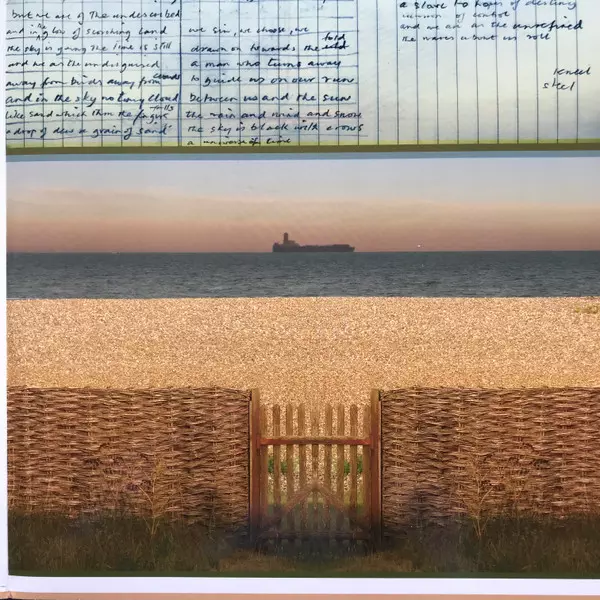 but we are of the undescribed
and in a low of scorching land
the sky is giving the time is still
and we are the undisguised
away from birds away from clouds
and in the sky no tiny cloud
like sand which thro the fingers falls
a drop of dew a grain of sand
we sin, we choose, we
drawn on towards the told
a man who turns away
to guide us on our run
between us and the sun
the rain and wind and snow
the sky is black with crows
a universe of time
a slave to hopes of destiny
of control
and we are the unrefined
the waves in but us roll
kneel
steel